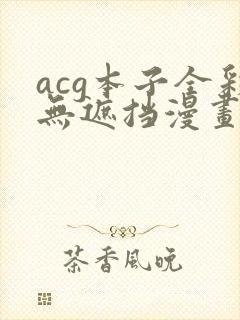 acg本子全彩
無遮挡漫畫
茶香風晚